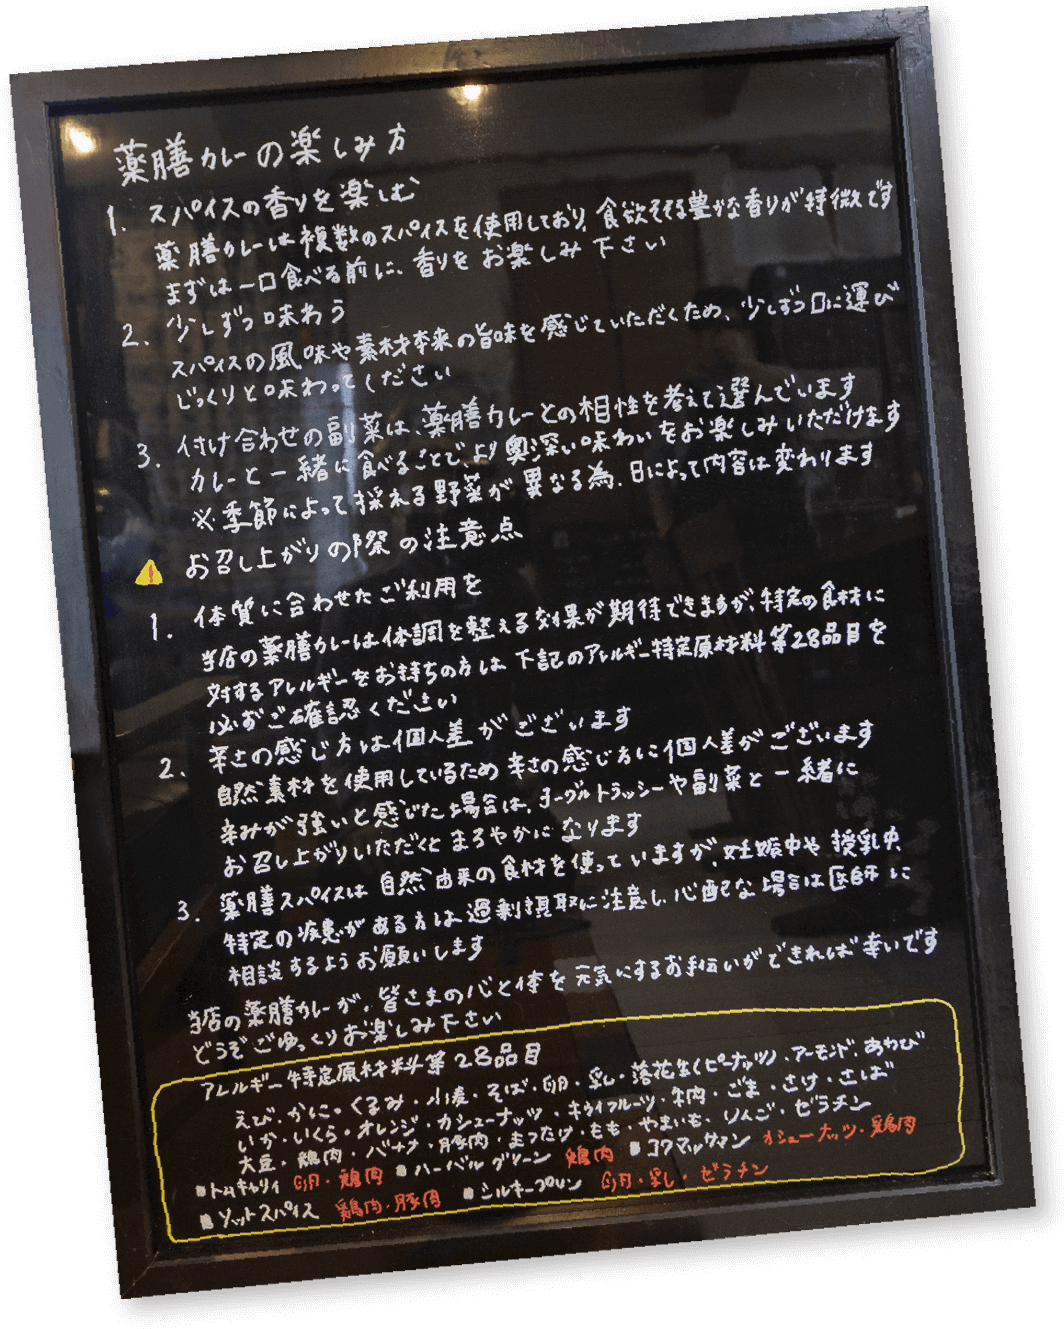 薬膳カレーの楽しみ方
1. スパイスの香りを楽しむ
薬膳カレーは複数のスパイスを使用しており、食欲そそる豊かな香りが特徴です
まずは一口食べる前に、香りをお楽しみ下さい
2. 少しずつ味わう
スパイスの風味や素材本来の旨味を感じていただくため、少しずつ口に運び
じっくりと味わってください
3. 付け合わせの副菜は、薬膳カレーとの相性を考えて選んでいます
カレーと一緒に食べることで、より奥深い味わいをお楽しみいただけます
※季節によって採える野菜が異なる為、日によって内容は変わります
お召し上がりの際の注意点
1. 体質に合わせたご利用を
当店の薬膳カレーは体調を整える効果が期待できますが、特定の食材に
対するアレルギーをお持ちの方は下記のアレルギー特定原材料等28品目を
必ずご確認ください
2. 辛さの感じ方は個人差がございます
自然素材を使用しているため辛さの感じ方に個人差がございます
辛みが強いと感じた場合は、ヨーグルトラッシーや副菜と一緒に
お召し上がりいただくとまろやかになります
3. 薬膳スパイスは自然由来の食材を使っていますが、妊娠中や授乳中、
特定の疾患がある方は過剰摂取に注意し、心配な場合は医師に
相談するようお願いします
当店の薬膳カレーが、皆さまの心と体を元気にするお手伝いができれば幸いです
どうぞごゆっくりお楽しみ下さい
アレルギー特定原材料等28品目
えび・かに・くるみ・小麦・そば・卵・乳・落花生(ピーナッツ)・アーモンド・あわび
いか・いくら・オレンジ・カシューナッツ・キウイフルーツ・牛肉・ごま・さけ・さば
大豆・鶏肉・バナナ・豚肉・まつたけ・もも・やまいも・りんご・ゼラチン
■トムキャリィ 卵・鶏肉 ■ハーバルグリーン 鶏肉 ■コクマッサマン カシューナッツ・鶏肉
■ソットスパイス 鶏肉・豚肉 ■シルキープリン 卵・乳・ゼラチン